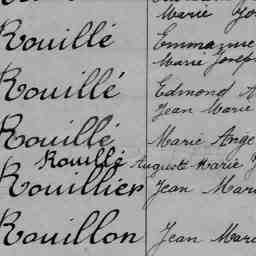 Marie
Rouillé Emma
Marie Joseph
Rouillé Edmond
Jean Marie
Rouillé Marie Ange
Rouillé Auguste Marie
Rouillier Jean Mari
Rouillon Jean Mari